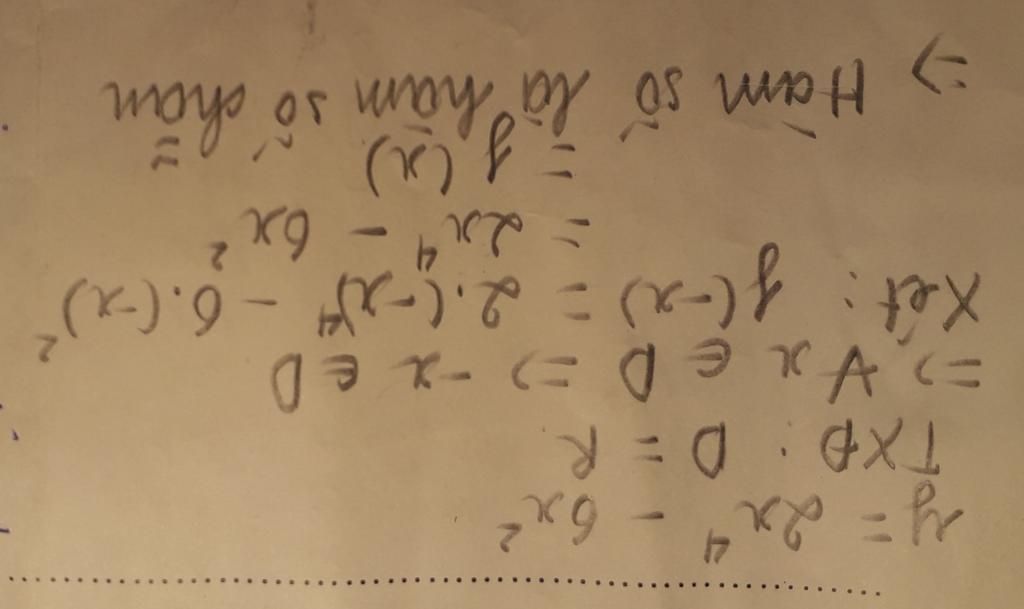 y = 2x⁴ - 6x²
TXĐ : D = R
=> ∀ x ∈ D => -x ∈ D
Xét : f(-x) = 2.(-x)⁴ - 6.(-x)²
= 2x⁴ - 6x²
= f(x)
=> Hàm số là hàm số chẵn